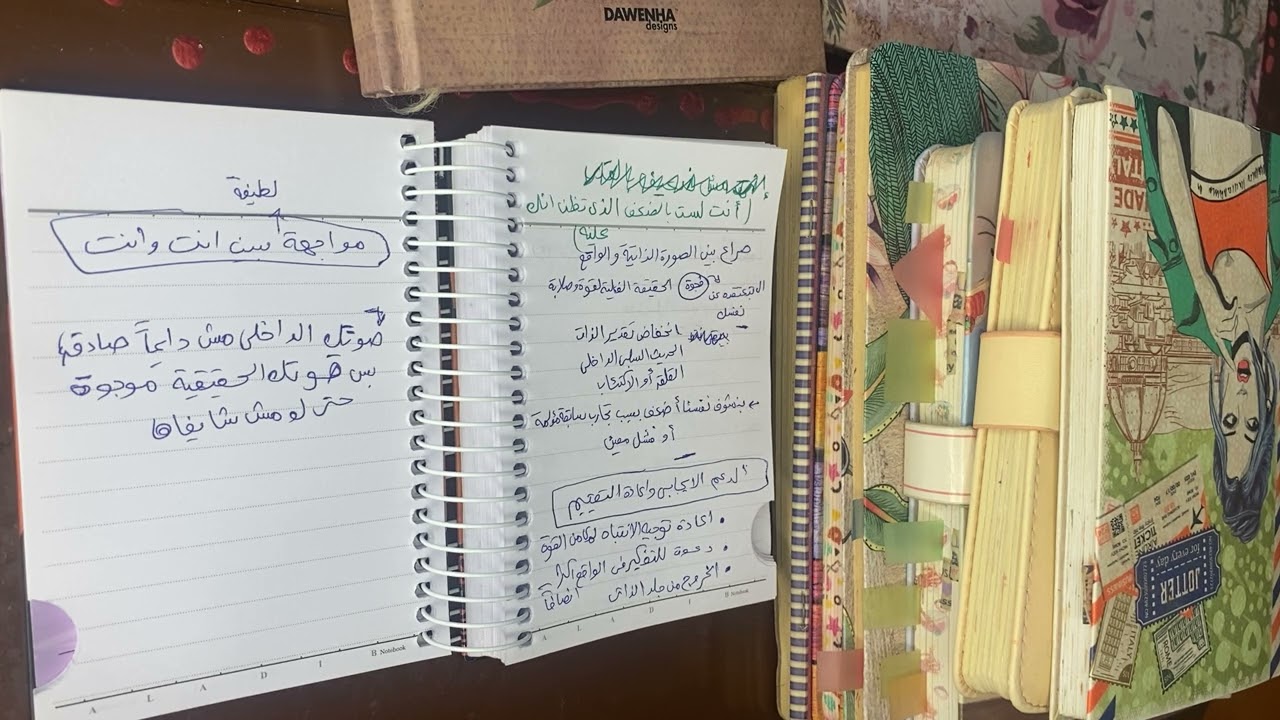 DAWENHA
designs
أنت لست بالضعف الذي تظن انك
عليه
صراع بين الصورة الذاتية والواقع
فجوة الحقيقة الفعلية لقوة وصلابة
نفسك
انخفاض تقدير الذات
الحديث السلبي الداخلي
القلق أو الاكتئاب
بنشوف نفسنا أضعف بسبب تجارب سابقة مؤلمة
أو فشل معين
الدعم الايجابي واعادة التقييم
• اعادة توجيه الانتباه لمكامن القوة
• دعوة للتفكير في الواقع أكثر انصافاً
• الخروج من جلد الذات
A L A D I B Notebook
لطيفة
مواجهة بين انت وأنت
صوتك الداخلى مش دايماً صادق،
بس قوتك الحقيقية موجودة
حتى لو مش شايفاها
A L A D I B Notebook
JOTTER
for every day
TICKET